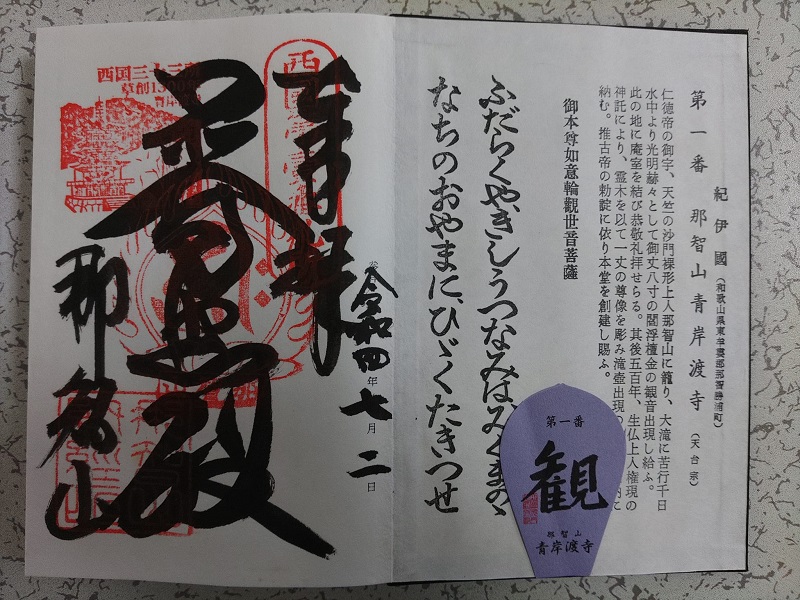 第一番 那智山青岸渡寺 (天台宗)
紀伊國 (和歌山県東牟婁郡那智勝浦町)
仁徳帝の御宇、天竺の沙門裸形上人那智山に籠り、大滝に苦行千日
水中より光明赫々として御丈八寸の閻浮檀金の観音出現し給ふ。
此の地に庵室を結び恭敬礼拝せらる。其後五百年、生仏上人権現の
神託により、霊木を以て一丈の尊像を彫み滝壺出現の
納む。推古帝の勅諚に依り本堂を創建し賜ふ。
御本尊如意輪觀世音菩薩
ふだらくや、きしうつなみは、みくまのゝ
なちのおやまに、ひゞくたきつせ
第一番
観
那智山
青岸渡寺
奉拝
令和四年七月二日
西国三十三所
草創1300年
那智山